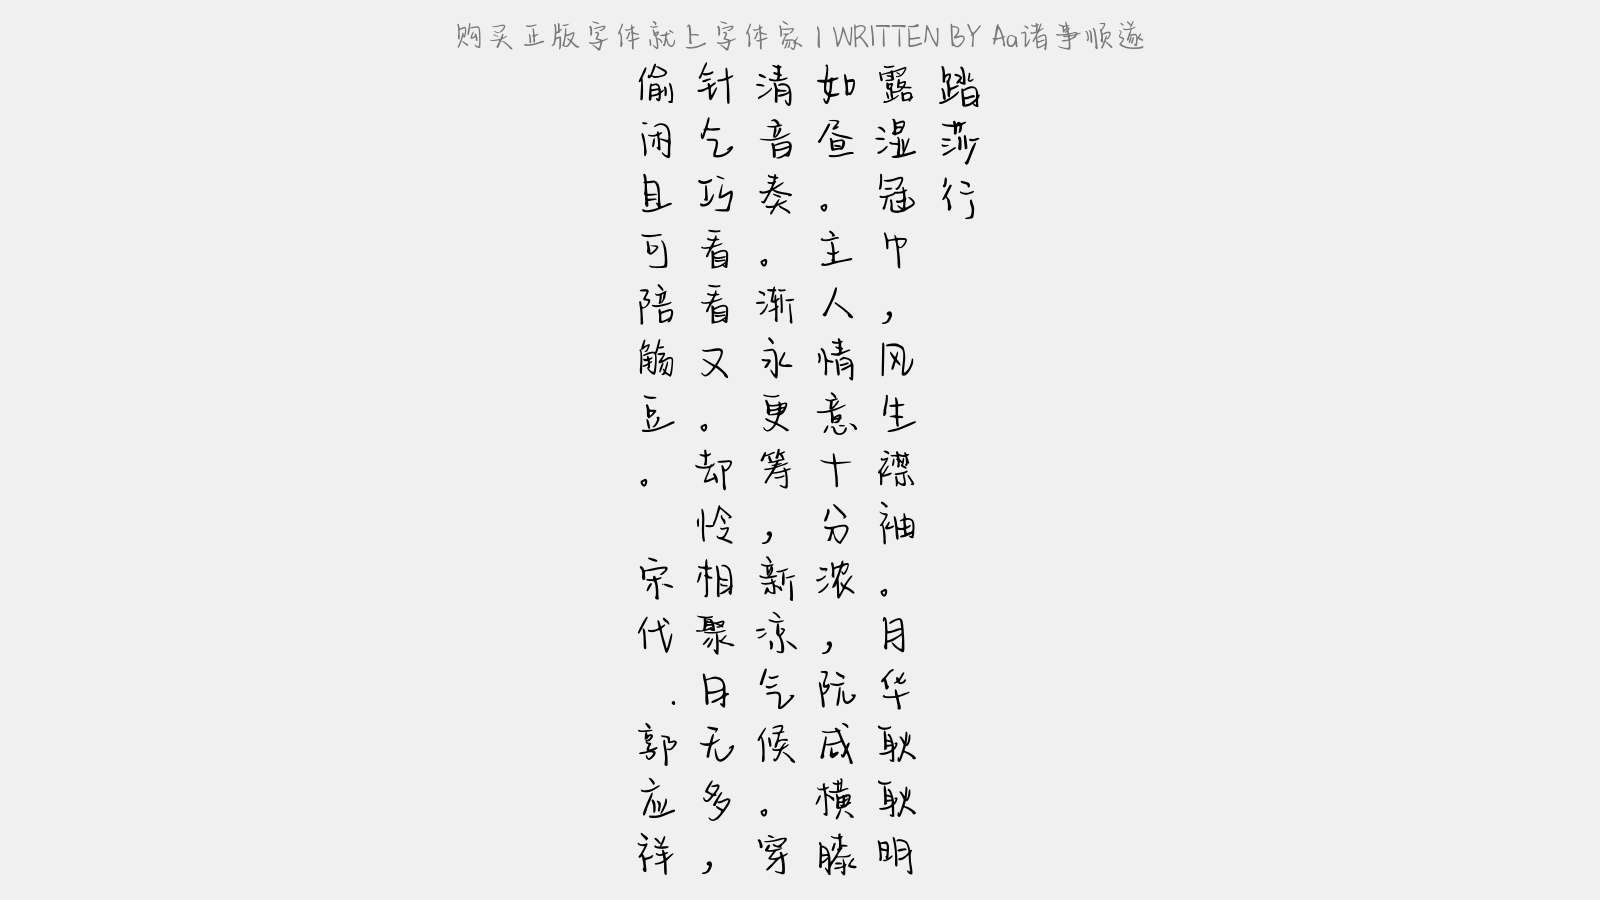 购买正版字体就上字体家 | WRITTEN BY Aa诸事顺遂
踏莎行
露湿冠巾，风生襟袖。月华耿耿明
如昼。主人情意十分浓，阮咸横膝
清音奏。渐永更筹，新凉气候。穿
针乞巧看看又。却怜相聚日无多，
偷闲且可陪觞豆。 宋代 . 郭应祥